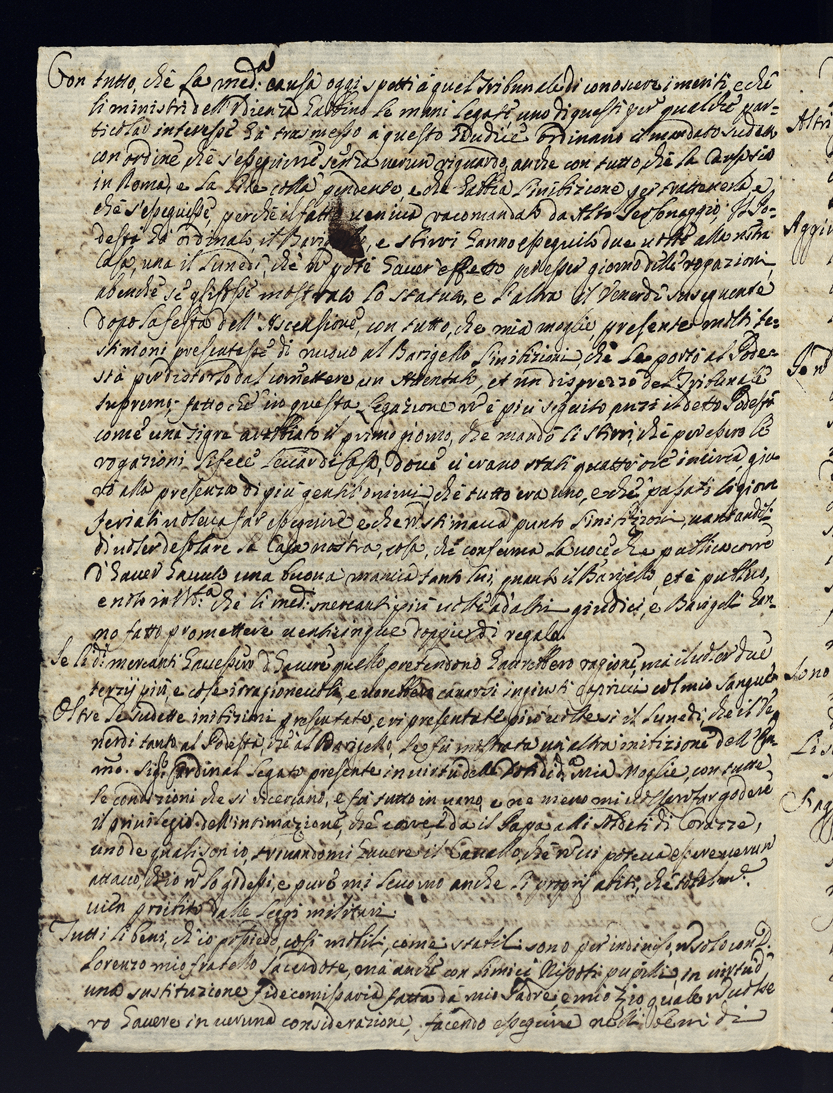 Con tutto, che la med.a causa oggi spetti à quel Tribunale di conoscere i meriti, e che
li ministri dell'Udienza habbino le mani legate uno di questi per qualche par=
ticolar interesse hà trasmesso a questo Giudice ordinario il mandato
con ordine che s'eseguisse senza verun riguardo, anche con tutto, che la Causa sia
in Roma, e la lite colla pendente e che habbia l'inibizione per trattenerla, e
che s'eseguisse, perche il fatto veniva racomandato da Alto Personaggio; Il Po=
destà hà ordinato il Barigello, e sbirri hanno eseguito due volte alla nostra
Casa, una il Lunedì, che n potè haver effetto per esser giorno delle rogazioni,
abenche se gli fosse mostrato lo statuto, e l'altra il Venerdì susseguente
dopo la festa dell'Ascensione, con tutto, che mia moglie presente molti te=
stimoni presentasse di nuovo al Barigello l'inibizioni, che le portò al Pode=
stà per distorlo dal comettere un Attentato, et un disprezzo de Tribunali
supremi; fatto che in questa Legazione n è più seguito anzi il detto Podestà
come una Tigre arrabbiato il primo giorno, che mandò li sbirri, che per esservi le
rogazioni li fece levar di Casa, dove vi erano stati quattro ore incirca, giu=
rò alla presenza di più gentilhuomini, che tutto era uno, e che passati li giorni
feriati voleva far eseguire e che n stimava punto l'inibizioni, vantandosi
di voler desolare la Casa nostra, cosa, che conferma la voce che publica corre
d'haver havuto una buona mancia tanto lui, quanto il Barigello, et è publico,
e noto che li med.i mercanti più volte ad altri giudici, e Barigelli han=
no fatto promettere venticinque doppie di regalo.
Se li d.i mercanti havessero d'havere quello pretendono havrebbero ragione, ma il voler due
terzi più, e cose irragionevoli, e vorrebbero cavarsi ingiusti capricci col mio sangue
Oltre le sudette inibizioni presentate, e ripresentate più volte sì il Lunedì, che il Ve=
nerdì tanto al Podestà, che al Barigello, le fù mostrata un'altra inibizione dell'Em=
mo. Sig.r Cardinal Legato presente in virtù della Dote di d.a mia Moglie, con tutte
le condizioni che si ricercano, e fù tutto in vano, e ne meno mi volse far godere
il privilegio dell'intimazione, che concede il Papa alli Soldati di Corazze,
uno de quali son io, trovandomi havere il Cavallo, che n vi poteva essere verun
attacco, ch'io n lo godessi, e pure mi levorno anche li proprij abiti, che
vien proibito dalle leggi militari
Tutti li beni, ch'io possiedo, così mobili, come stabili sono per indiviso, n solo con D.
Lorenzo mio fratello Sacerdote, mà anche con li miei Nipoti pupilli, in virtù d'
una sustituzione fidecomissaria fatta da mio Padre, e mio Zio quale n volse=
ro havere in veruna considerazione, facendo esseguire nelli beni di
Altri
Aggiun
Se n
Sono